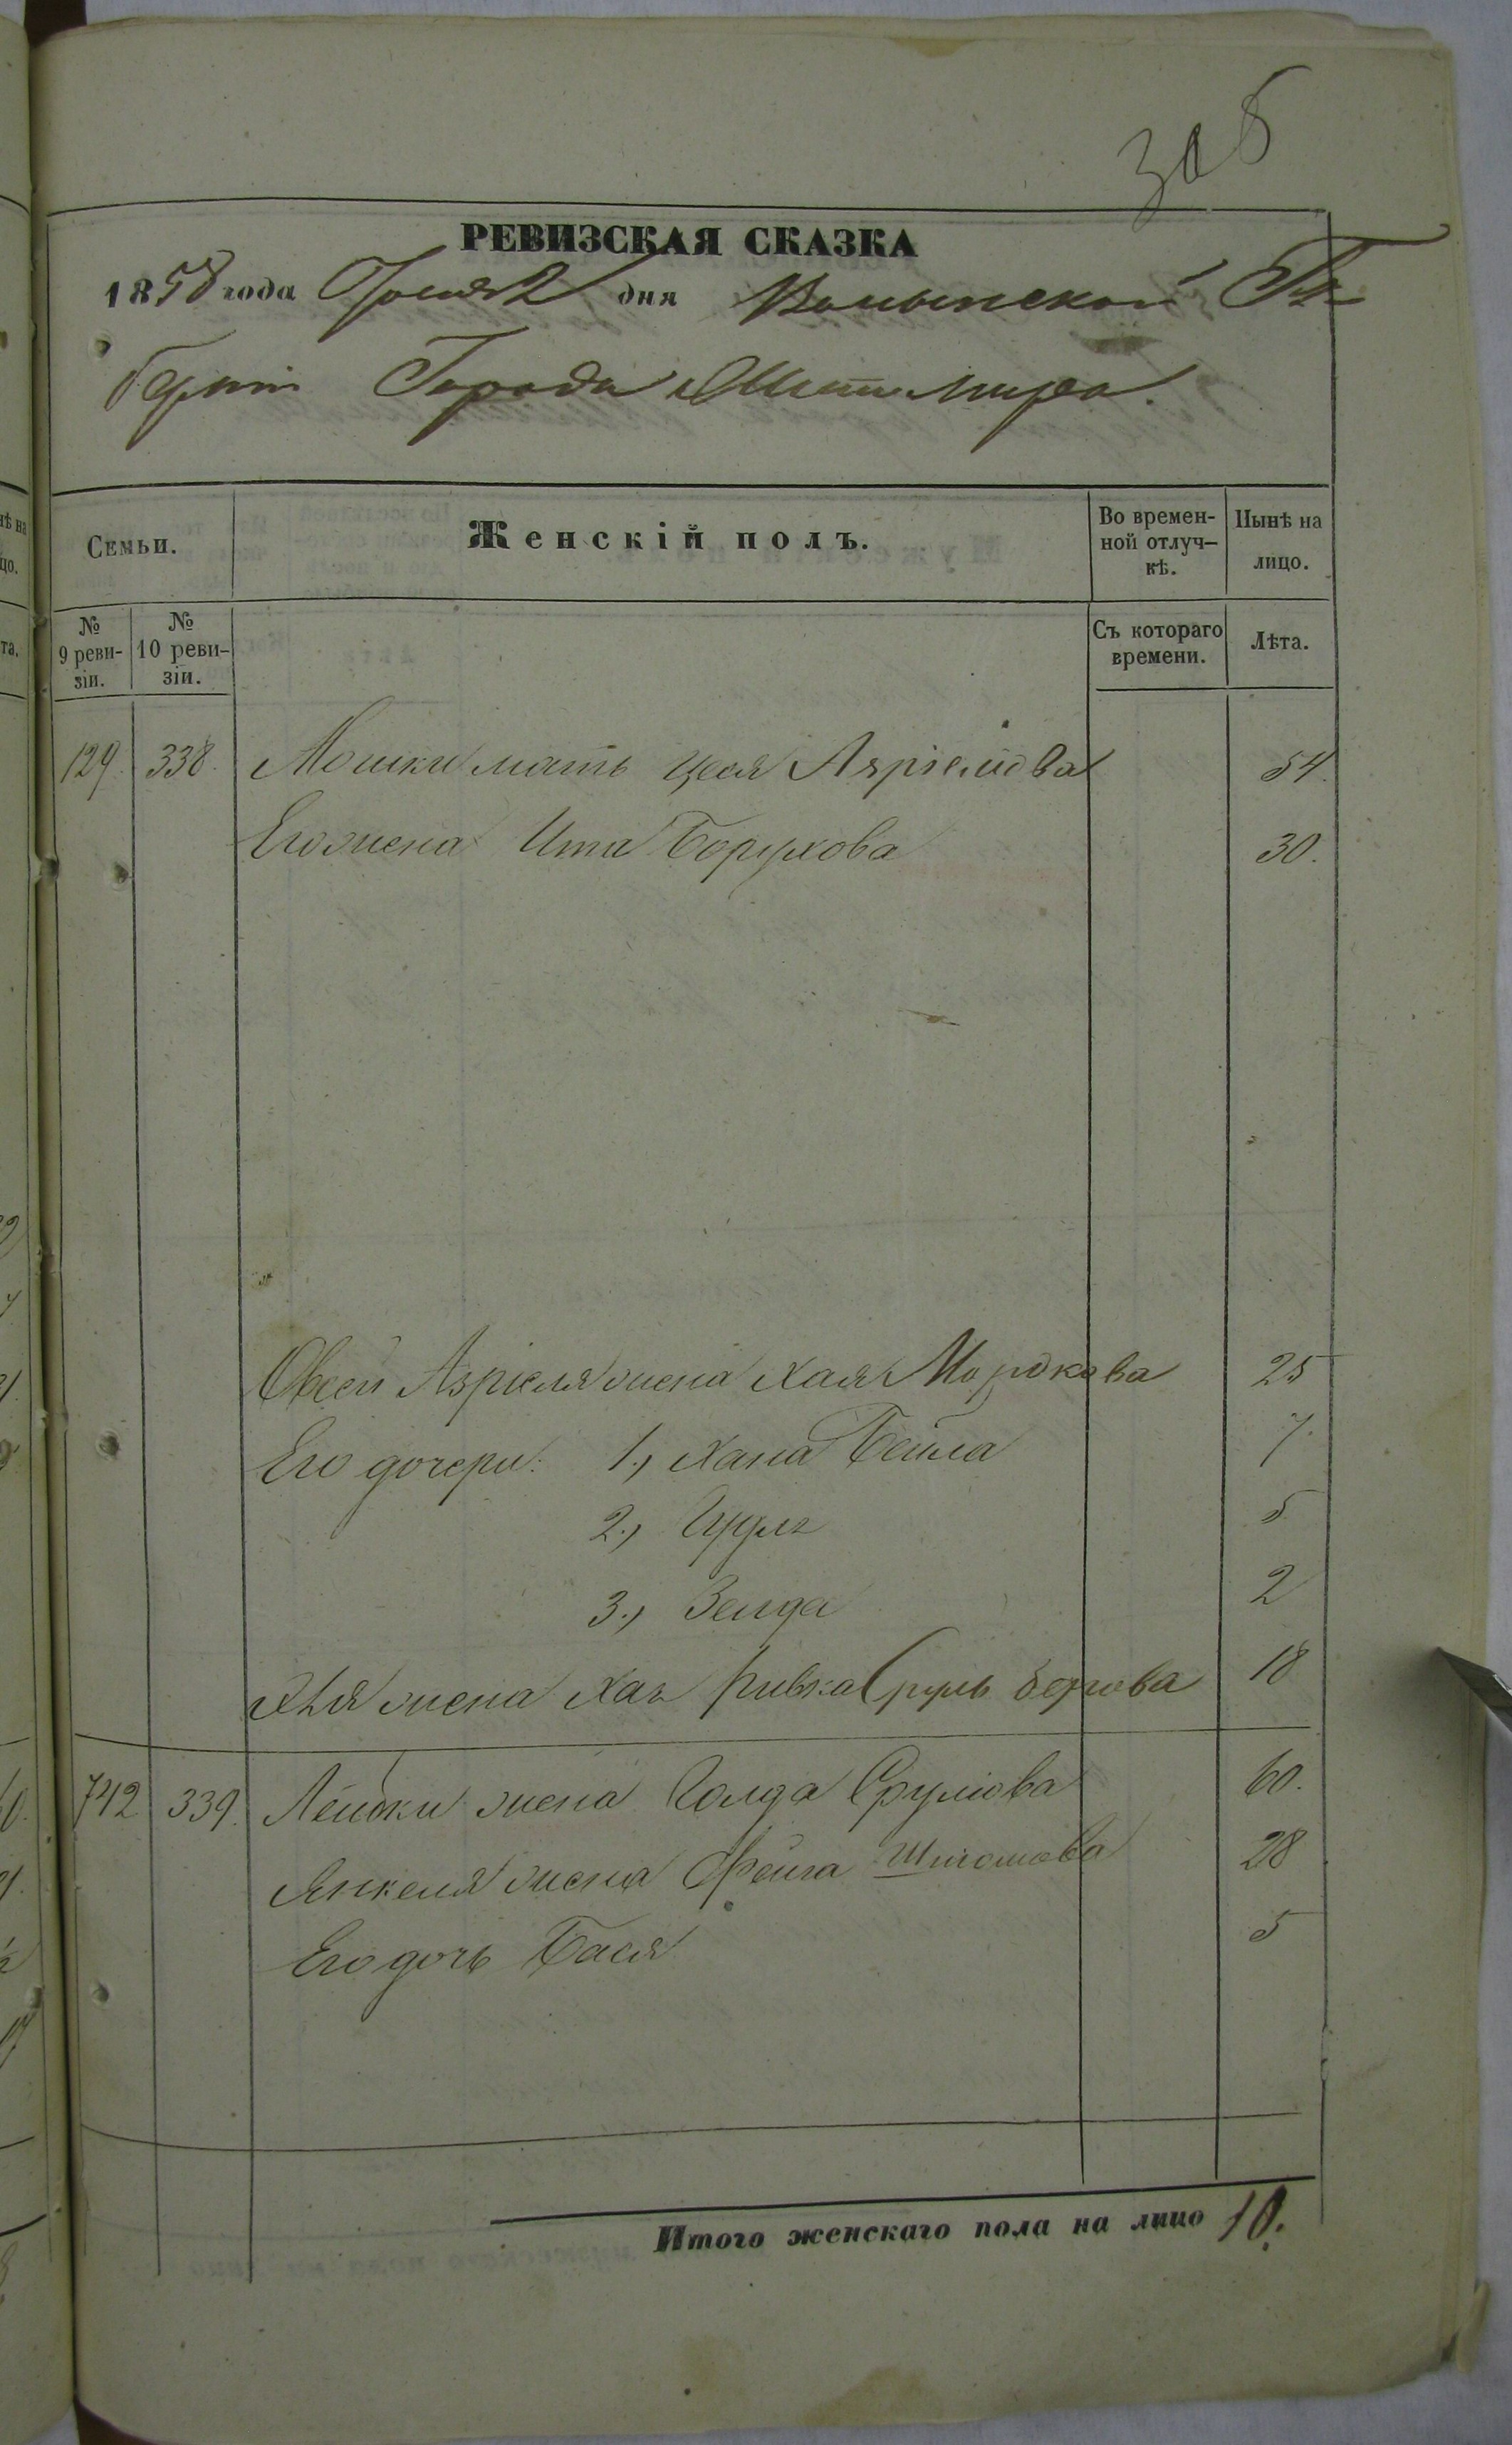 305
РЕВИЗСКАЯ СКАЗКА
1858 года Июня 2 дня Волынской Гу
берніи Города Житомира.
Семьи.
Женскій полъ.
Во времен-
ной отлуч-
кѣ.
Нынѣ на
лицо.
№
9 реви-
зіи.
№
10 реви-
зіи.
Съ котораго
времени.
Лѣта.
129. 338. Мошки мать Цеся Азріелиова 54.
Его жена Ита Борухова 30.
Овсей Азріеля жена Хая Мордкова 25
Его дочери: 1., Хана Бейла 7.
2., 5
3., Зелда 2
жена Хая Ривка Сруль Берова 18
742 339. Лейбки жена Голда Срулиова 60.
Янкеля жена Фейга Шліомова 28
Его дочь Бася 5
Итого женскаго пола на лицо 10.